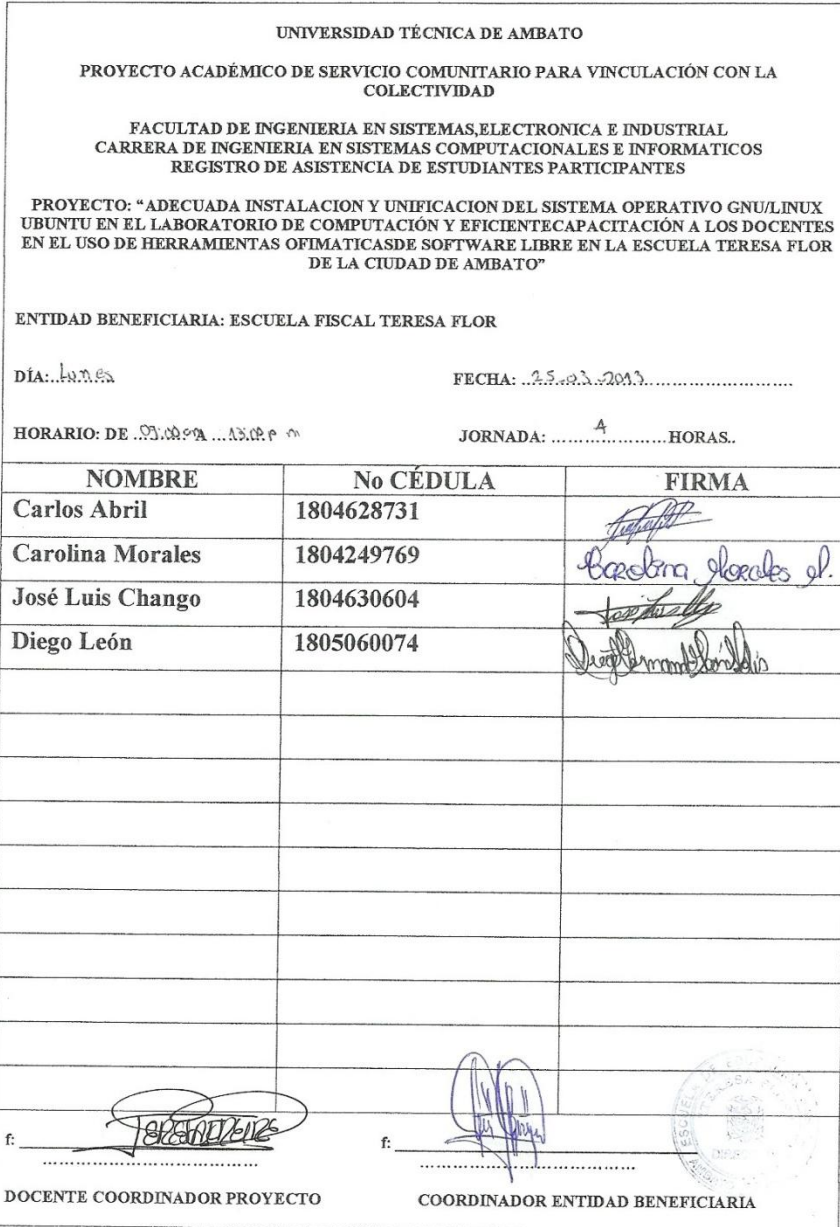 UNIVERSIDAD TÉCNICA DE AMBATO
PROYECTO ACADÉMICO DE SERVICIO COMUNITARIO PARA VINCULACIÓN CON LA
COLECTIVIDAD
FACULTAD DE INGENIERIA EN SISTEMAS,ELECTRONICA E INDUSTRIAL
CARRERA DE INGENIERIA EN SISTEMAS COMPUTACIONALES E INFORMATICOS
REGISTRO DE ASISTENCIA DE ESTUDIANTES PARTICIPANTES
PROYECTO: “ADECUADA INSTALACION Y UNIFICACION DEL SISTEMA OPERATIVO GNU/LINUX
UBUNTU EN EL LABORATORIO DE COMPUTACIÓN Y EFICIENTECAPACITACIÓN A LOS DOCENTES
EN EL USO DE HERRAMIENTAS OFIMATICASDE SOFTWARE LIBRE EN LA ESCUELA TERESA FLOR
DE LA CIUDAD DE AMBATO”
ENTIDAD BENEFICIARIA: ESCUELA FISCAL TERESA FLOR
DÍA: Lunes FECHA: 25-03-2013
HORARIO: DE A JORNADA: 4 HORAS..
NOMBRE No CÉDULA FIRMA
Carlos Abril 1804628731
Carolina Morales 1804249769 Carolina Morales
José Luis Chango 1804630604 José Luis
Diego León 1805060074
f: f:
DOCENTE COORDINADOR PROYECTO COORDINADOR ENTIDAD BENEFICIARIA